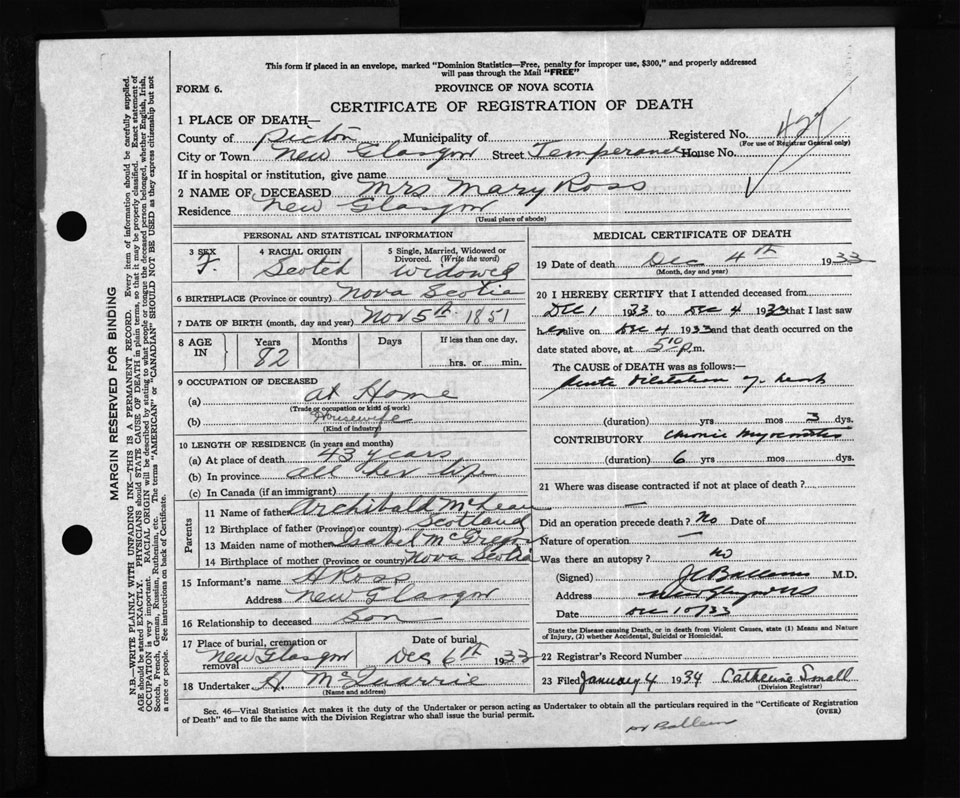 This form if placed in an envelope, marked "Dominion Statistics—Free, penalty for improper use, $300," and properly addressed
will pass through the Mail "FREE"
FORM 6.
PROVINCE OF NOVA SCOTIA
CERTIFICATE OF REGISTRATION OF DEATH
1 PLACE OF DEATH—
County of Pictou Municipality of Registered No. 429
(For use of Registrar General only)
City or Town New Glasgow Street Temperance House No.
If in hospital or institution, give name
2 NAME OF DECEASED Mrs Mary Ross
Residence New Glasgow
(Usual place of abode)
PERSONAL AND STATISTICAL INFORMATION
3 SEX
F.
4 RACIAL ORIGIN
Scotch
5 Single, Married, Widowed or
Divorced. (Write the word)
Widowed
6 BIRTHPLACE (Province or country) Nova Scotia
7 DATE OF BIRTH (month, day and year) Nov 5th 1851
8 AGE IN
Years Months Days If less than one day,
82 hrs. or min.
9 OCCUPATION OF DECEASED
(a) at Home
(Trade or occupation or kind of work)
(b) Housewife
(Kind of industry)
10 LENGTH OF RESIDENCE (in years and months)
(a) At place of death 43 years
(b) In province all her life
(c) In Canada (if an immigrant)
Parents
11 Name of father Archibald McLean
12 Birthplace of father (Province or country) Scotland
13 Maiden name of mother Isabel McGregor
14 Birthplace of mother (Province or country) Nova Scotia
15 Informant's name A Ross
Address New Glasgow
16 Relationship to deceased Son
17 Place of burial, cremation or removal New Glasgow
Date of burial Dec 6th 1933
18 Undertaker H. McQuarrie
(Name and address)
MEDICAL CERTIFICATE OF DEATH
19 Date of death Dec 4th 1933
(Month, day and year)
20 I HEREBY CERTIFY that I attended deceased from
Dec 1 1933 to Dec 4 1933 that I last saw
her alive on Dec 4 1933 and that death occurred on
the date stated above, at 5 10 p.m.
The CAUSE of DEATH was as follows:—
Acute Dilatation of heart
(duration) yrs mos 3 dys.
CONTRIBUTORY Chronic myocarditis
(duration) 6 yrs mos dys.
21 Where was disease contracted if not at place of death?
Did an operation precede death? No Date of
Nature of operation
Was there an autopsy? no
(Signed) M.D.
Address New Glasgow NS
Date Dec 10/33
State the Disease causing Death, or in death from Violent Causes, state (1) Means and Nature
of Injury, (2) whether Accidental, Suicidal or Homicidal.
22 Registrar's Record Number
23 Filed January 4 1934 Catherine Small
(Division Registrar)
Sec. 46—Vital Statistics Act makes it the duty of the Undertaker or person acting as Undertaker to obtain all the particulars required in the "Certificate of Registration
of Death" and to file the same with the Division Registrar who shall issue the burial permit.
(OVER)
MARGIN RESERVED FOR BINDING
N.B.—WRITE PLAINLY WITH UNFADING INK—THIS IS A PERMANENT RECORD. Every item of information should be carefully supplied.
AGE should be stated EXACTLY. PHYSICIANS should STATE CAUSE OF DEATH in plain terms, so that it may be properly classified. Exact statement of
OCCUPATION is very important. RACIAL ORIGIN will be described by stating to what people or tongue the deceased person belonged, whether English, Irish,
Scotch, French, German, Russian, Ruthenian, etc. The terms "AMERICAN" or "CANADIAN" SHOULD NOT BE USED as they express citizenship but not
a race or people. See instructions on back of Certificate.